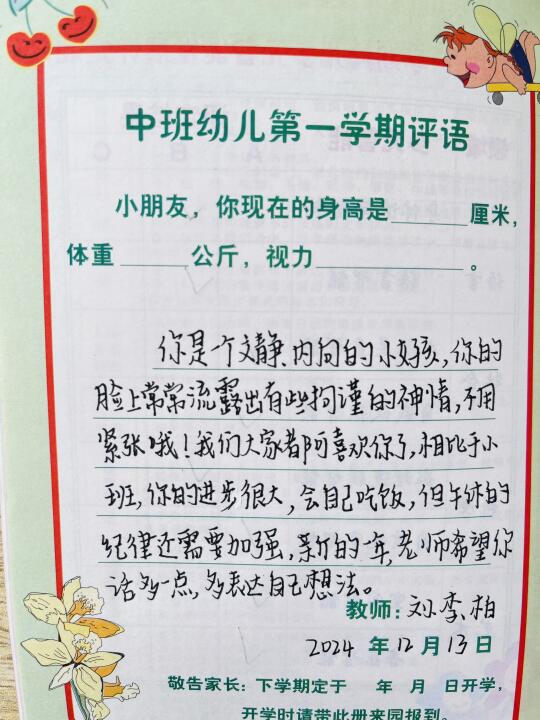 中班幼儿第一学期评语
小朋友，你现在的身高是______厘米，
体重______公斤，视力____________。
你是个文静、内向的小女孩，你的
脸上常常流露出有些拘谨的神情，不用
紧张哦！我们大家都可喜欢你了，相比于小
班，你的进步很大，会自己吃饭，但午休的
纪律还需要加强，新的一年，老师希望你
话多一点，多表达自己想法。
教师：刘李柏
2024 年 12 月 13 日
敬告家长：下学期定于 年 月 日开学，
开学时请带此册来园报到。